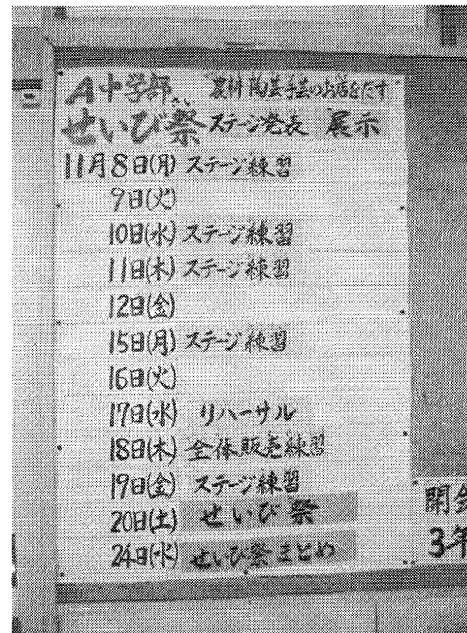 A中学部 農科 陶芸手芸のお店をだす
せいび祭 ステージ発表 展示
11月8日(月) ステージ練習
9日(火)
10日(水) ステージ練習
11日(木) ステージ練習
12日(金)
15日(月) ステージ練習
16日(火)
17日(水) リハーサル
18日(木) 全体販売練習
19日(金) ステージ練習
20日(土) せいび祭
24日(水) せいび祭まとめ
開会
3年